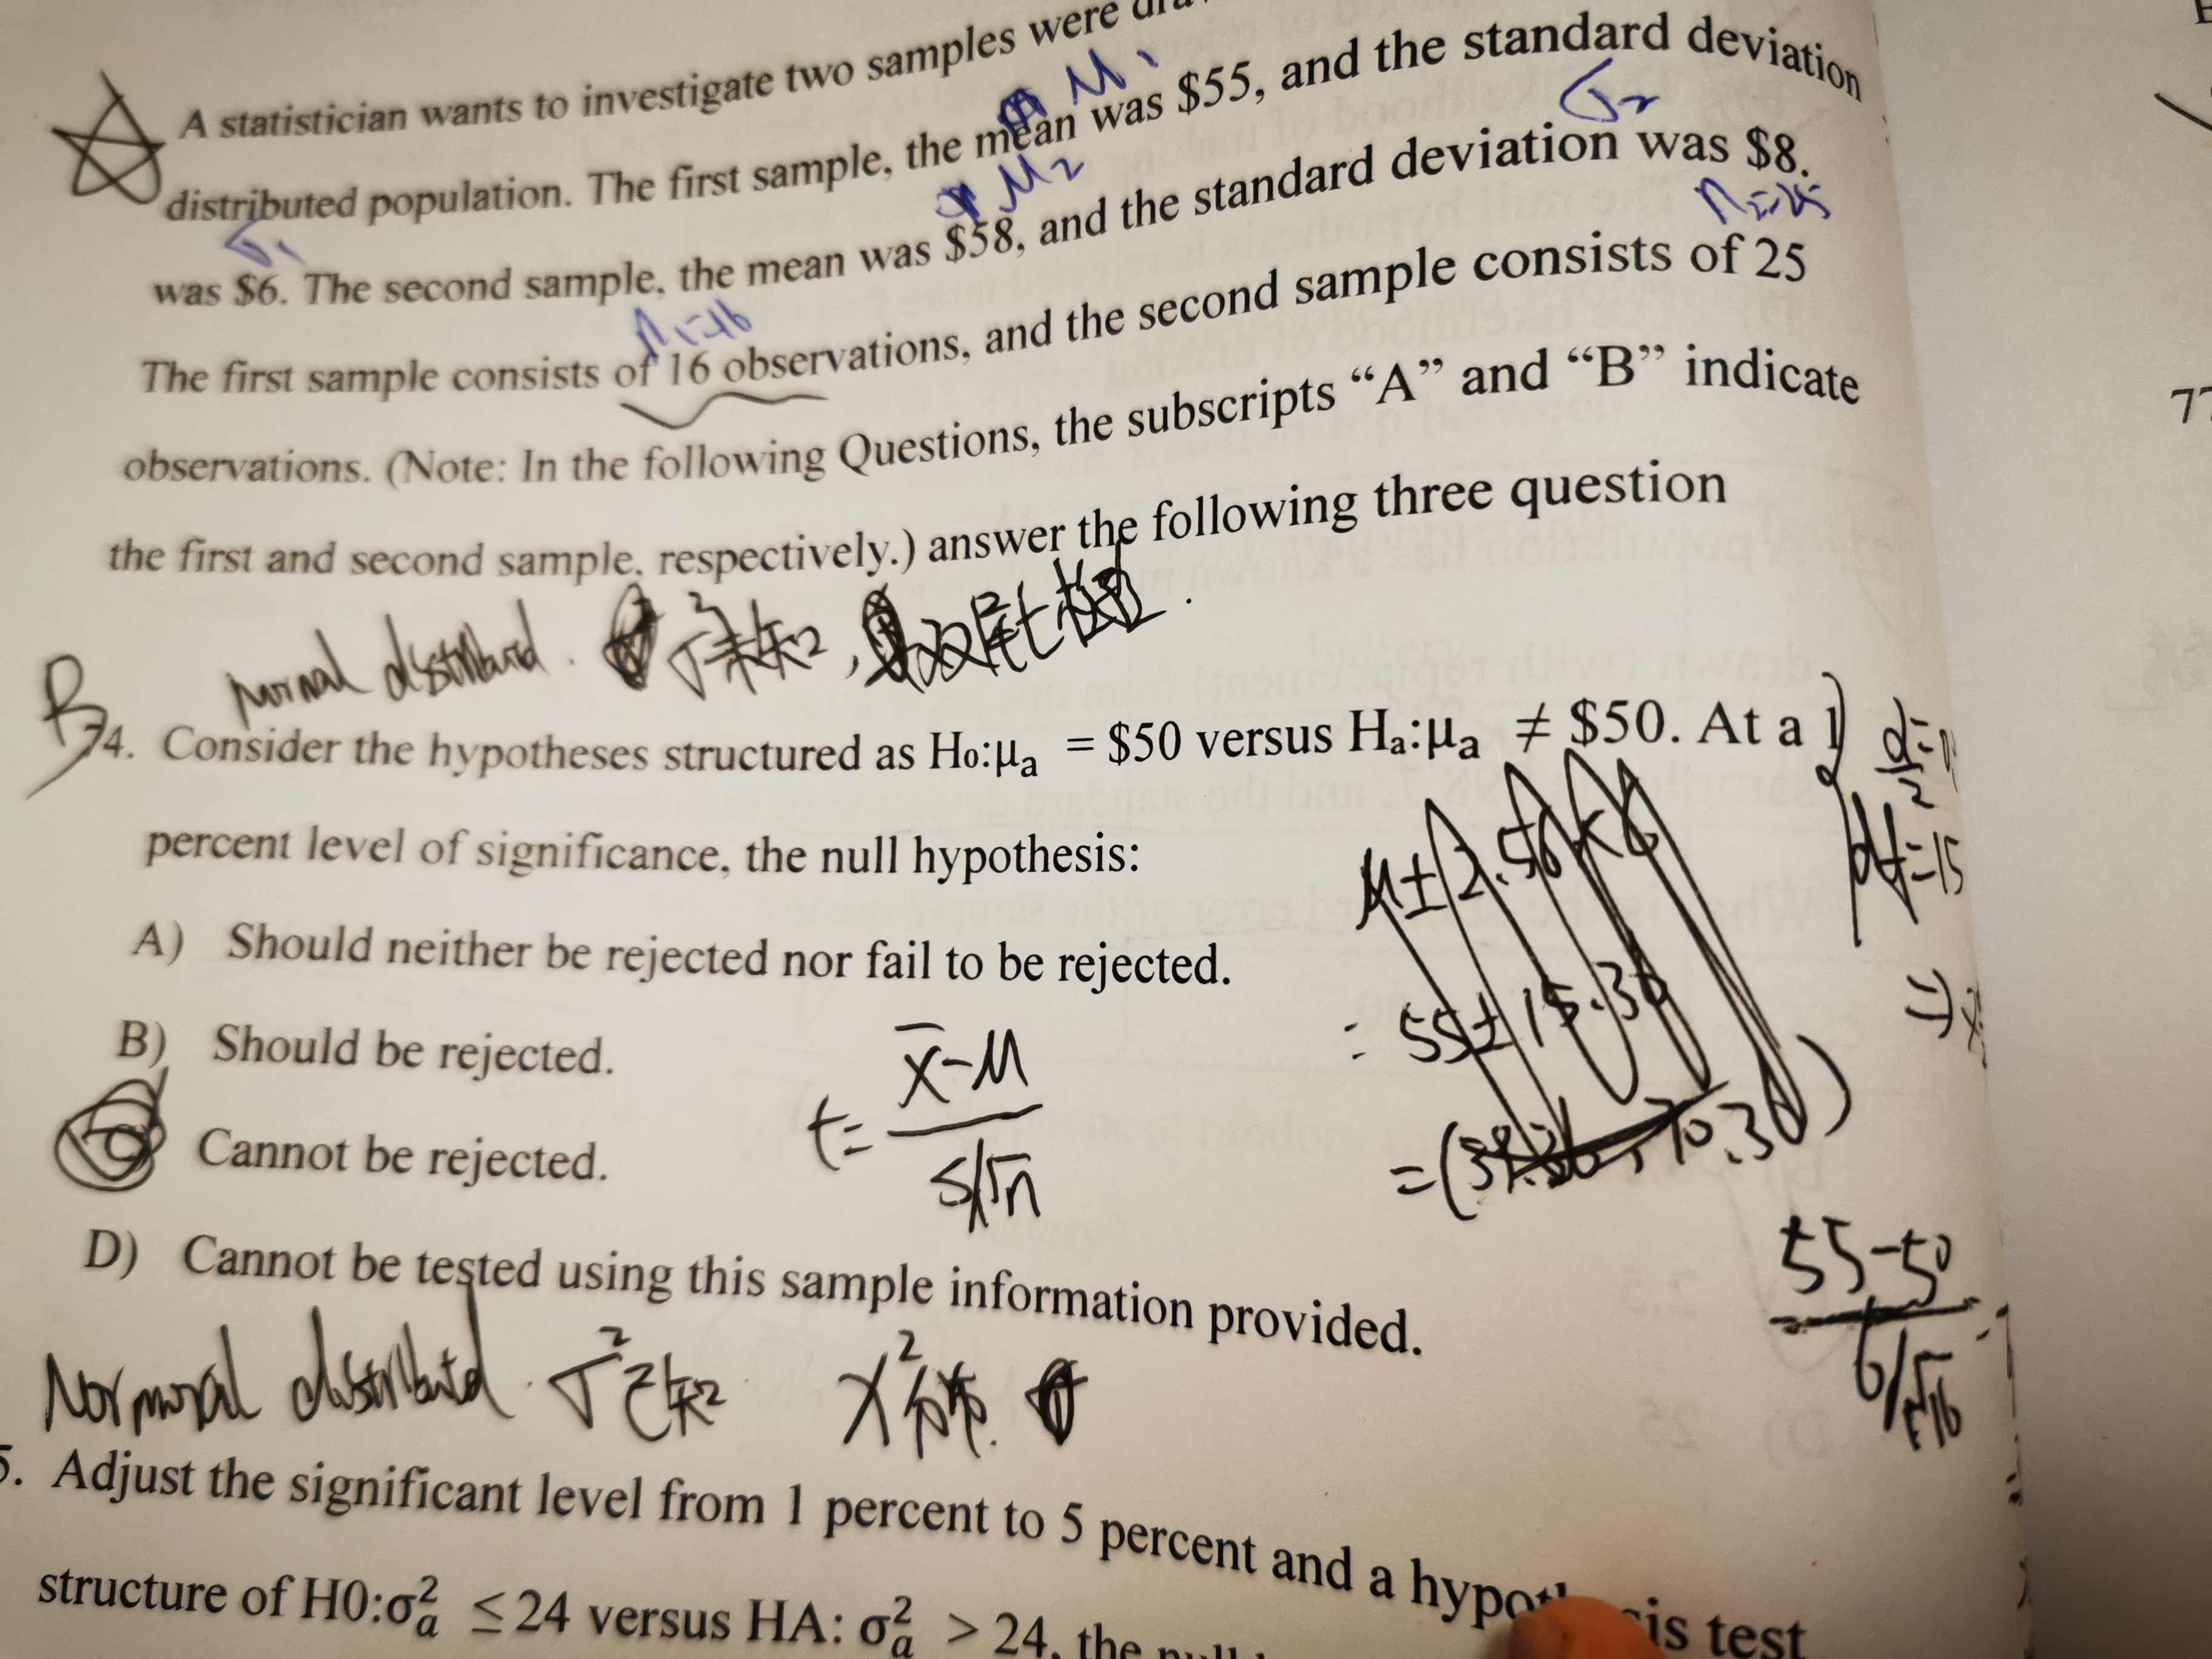 A statistician wants to investigate two samples were
μ₁
distributed population. The first sample, the mean was $55, and the standard deviation
σ₁ μ₂ σ₂
was $6. The second sample, the mean was $58, and the standard deviation was $8.
n₁=16 n₂=25
The first sample consists of 16 observations, and the second sample consists of 25
observations. (Note: In the following Questions, the subscripts “A” and “B” indicate
the first and second sample, respectively.) answer the following three question
normal distributed. σ²未知, 双尾t检验.
B
74. Consider the hypotheses structured as H₀:μₐ = $50 versus Hₐ:μₐ ≠ $50. At a 1
percent level of significance, the null hypothesis:
df=15
A) Should neither be rejected nor fail to be rejected.
B) Should be rejected.
C) Cannot be rejected.
t= x̄-μ / s/√n
D) Cannot be tested using this sample information provided.
55-50 / 6/√16
Normal distributed. σ²已知 χ²分布.
5. Adjust the significant level from 1 percent to 5 percent and a hypothesis test
structure of H0:σ²ₐ ≤ 24 versus HA: σ²ₐ > 24, the null
77